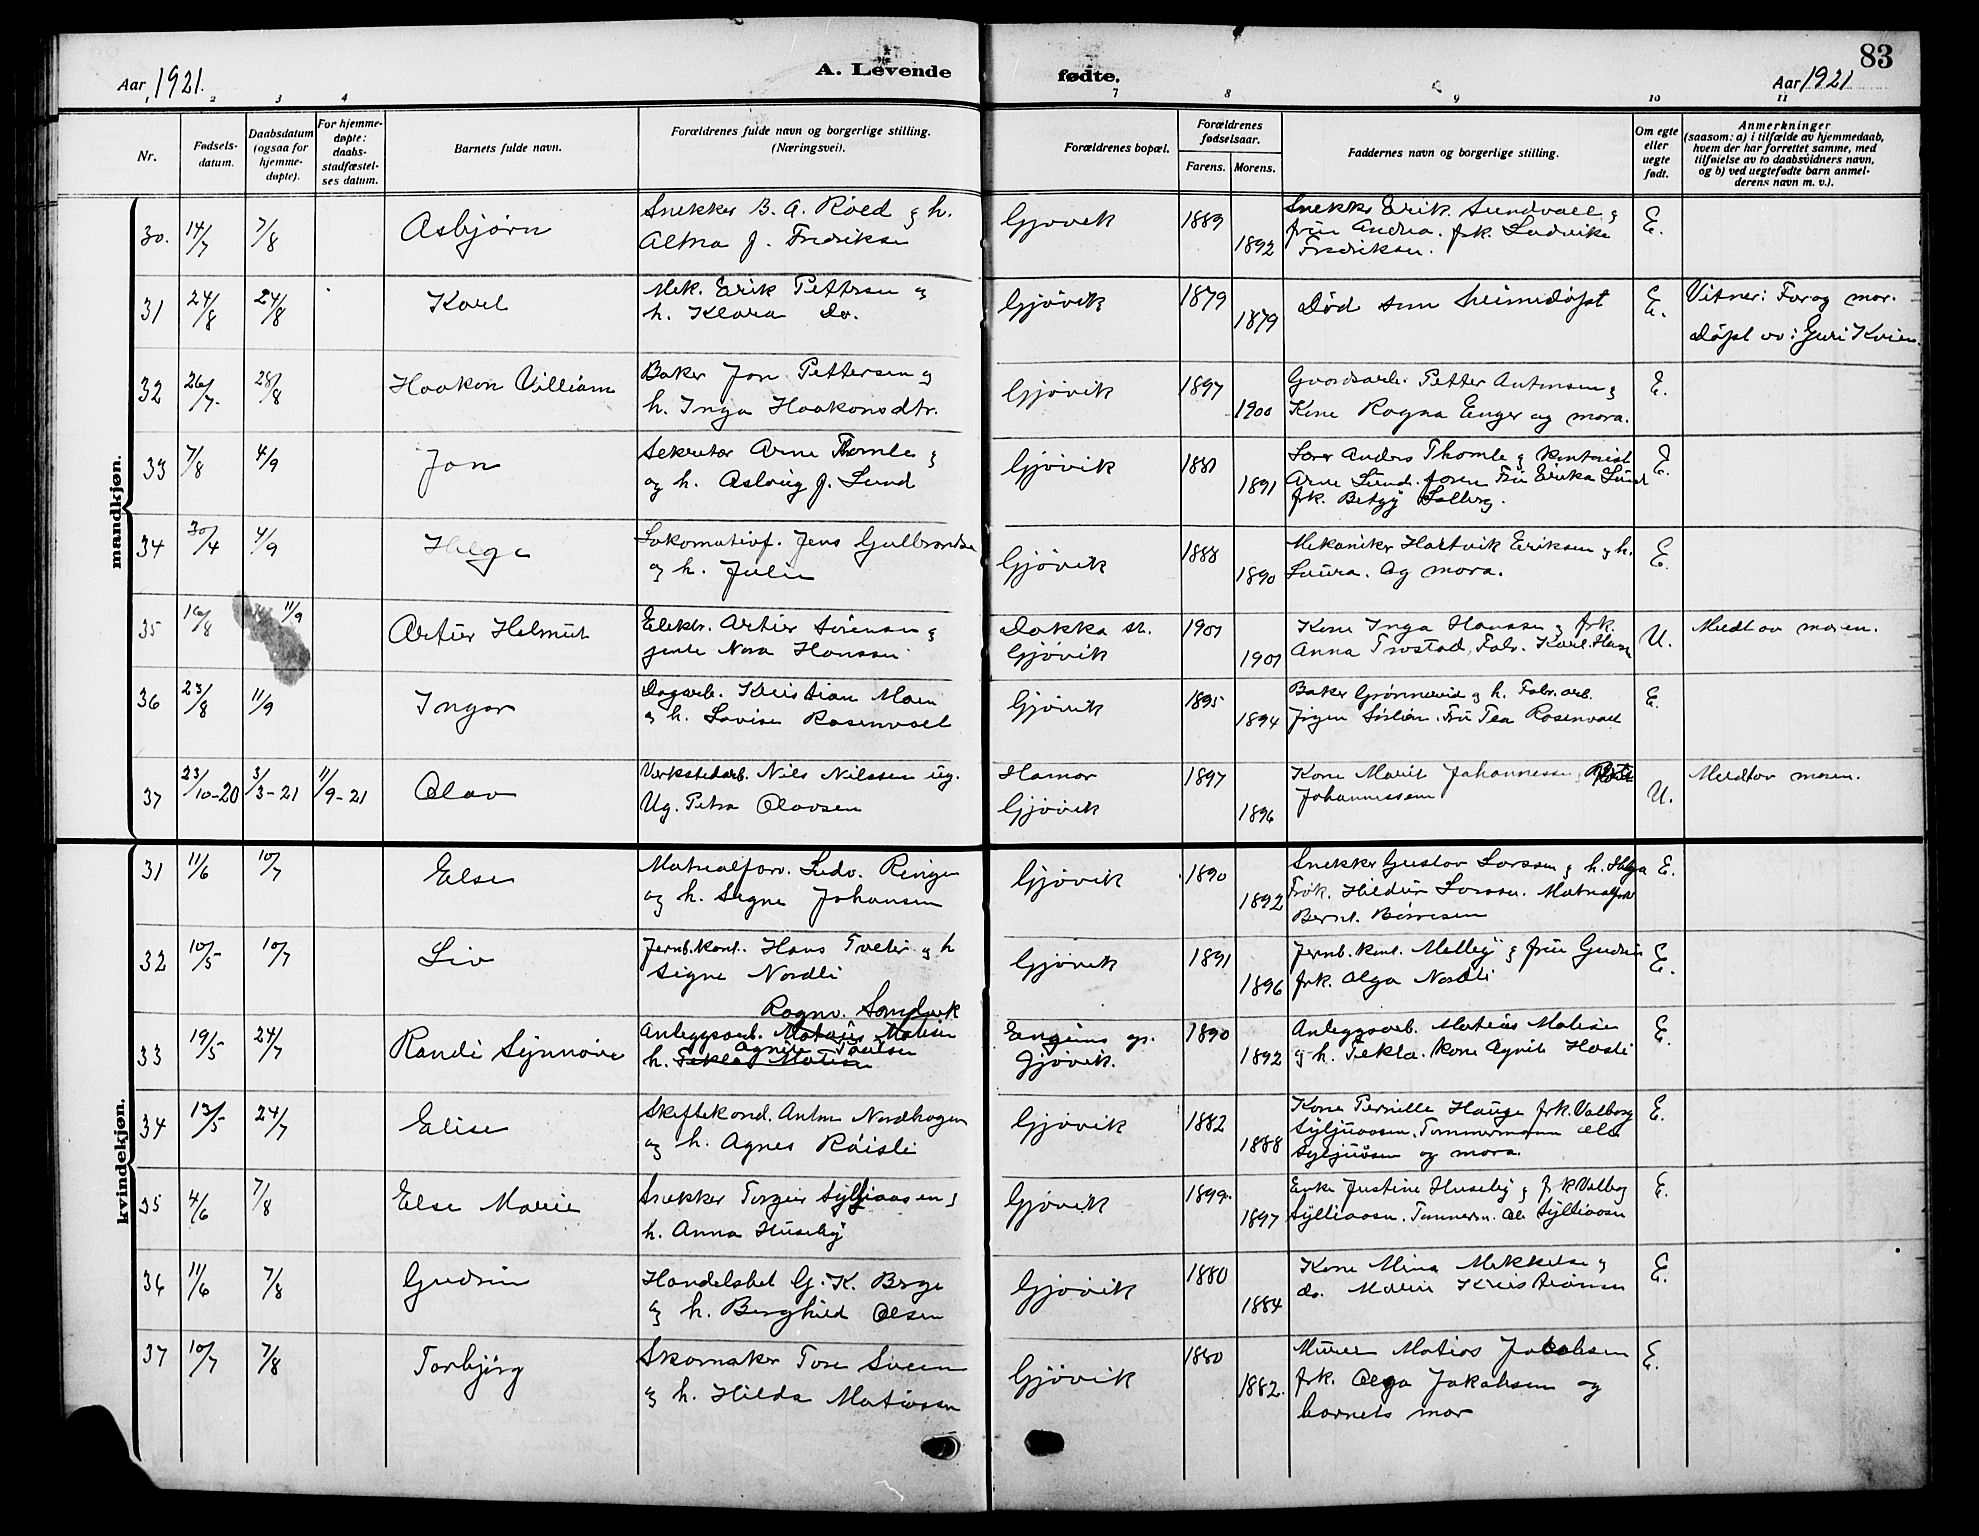 83
Aar 1921.
A. Levende
fødte.
Aar 1921
1 2 3 4 7 8 9 10 11
Nr.
Fødsels-
datum.
Daabsdatum
(ogsaa for
hjemme-
døpte).
For hjemme-
døpte:
daabs-
stadfæstel-
ses datum.
Barnets fulde navn.
Forældrenes fulde navn og borgerlige stilling.
(Næringsvei).
Forældrenes bopæl.
Forældrenes
fødselsaar.
Farens. Morens.
Faddernes navn og borgerlige stilling.
Om egte
eller
uegte
født.
Anmerkninger
(saasom: a) i tilfælde av hjemmedaab,
hvem der har forrettet samme, med
tilføielse av to daabsvidners navn,
og b) ved uegtefødte barn anmel-
derens navn m. v.).
mandkjøn.
30. 14/7 7/8 Asbjørn
Snekker B. A. Røed og h.
Alma J. Fredriksen
Gjøvik 1889 1892
Snekker Erik Sundvall og
frue Andrea. frk. Ludvike
Fredriksen.
E.
31 24/8 24/8 Karl
Mek. Erik Pettersen og
h. Klara Do.
Gjøvik 1879 1879
Død som heimedøpt
E.
Vitner: Far og mor.
Døpt av: Guri Kvien.
32 26/7. 28/8 Haakon Villiam
Baker Jon Pettersen og
h. Inga Haakonsdtr.
Gjøvik 1897 1900
Gaardsarb. Petter Antonsen og
Kone Ragna Enger og mora.
E.
33 7/8 4/9 Jon
Sekretær Arne Thomle og
og h. Aslaug J. Lund
Gjøvik 1881 1891
Lærer Anders Thomle og kontorist
Arne Lund. Fru Erika Lund
frk. Betzy Solberg.
E.
34 30/4 4/9 Helge
Lokomotivf. Jens Gulbrandsen
og h. Julie
Gjøvik 1888 1890
Mekaniker Hartvik Eriksen og h.
Laura. Og mora.
E.
35 16/8 11/9 Artur Helmut
Elektr. Artur Sørensen og
jente Nora Hanssen
Dokka st.
Gjøvik 1901 1901
Kone Inga Hanssen og frk.
Anna Trostad, Fabr. Karl Hansen
U.
Meldt av moren.
36 23/8 11/9 Ingar
Dagarb. Kristian Moen
og h. Lovise Rosenvall
Gjøvik 1895 1894
Baker Grønnerud og h. Fabr. arb.
Fru Tea Rosenvall
E.
37 23/10-20 3/3-21 11/9-21 Olav
Verkstedarb. Nils Nilssen ug.
Ug. Petra Olavsen
Hamar
Gjøvik 1897 1896
Kone Marit Johannessen,
Johannessen
U.
Meldt av moren.
kvindekjøn.
31 11/6 10/7 Else
Materialforv. Ludv. Ringen
og h. Signe Johansen
Gjøvik 1890 1892
Snekker Gustav Larssen og h. Helga
Frøk. Hildur Larssen. Materialforv
Bernt. Børresen
E.
32 10/5 10/7 Liv
Jernb.kont. Hans Træter og h
Signe Nordli
Gjøvik 1891 1896
Jernb. kont. Melleby og frue Gudrun
frk. Olga Nordli
E.
33 19/5 24/7 Randi Synnøve
Ragnv. Samdvik
Anleggsarb. Matias Matisen
Agnete Paulsen
h. Tekla Matisen
Gjøvik. 1890 1892
Anleggsarb. Matias Matisen
og h. Tekla. kone Agnete Hasli
E.
34 13/5 24/7 Elise
Skiftekond. Anton Nordhagen
og h. Agnes Røisli
Gjøvik 1882 1888
Kone Pernille Hauge frk. Valborg
Syljuaasen. Tømmermann Ole
Syljuåsen og mora.
E.
35 4/6 7/8 Else Marie
Snekker Torgeir Sylliaasen og
h. Anna Huseby
Gjøvik 1899. 1897
Enke Justine Huseby og frk Valborg
Sylliaasen. Tømmerm. Ole Sylliaasen
E.
36 11/6 7/8 Gudrun
Handelsbet G. K. Berge
og h. Borghild Olsen
Gjøvik 1880 1884
Kone Mina Mikkelsen og
do. Marie Kristiansen
E.
37 10/7 7/8 Torbjørg
Skomaker Tore Sveen
og h. Hilda Matiassen
Gjøvik 1880 1882.
Murer Matias Jakobsen
frk. Olga Jakobsen og
barnets mor
E.